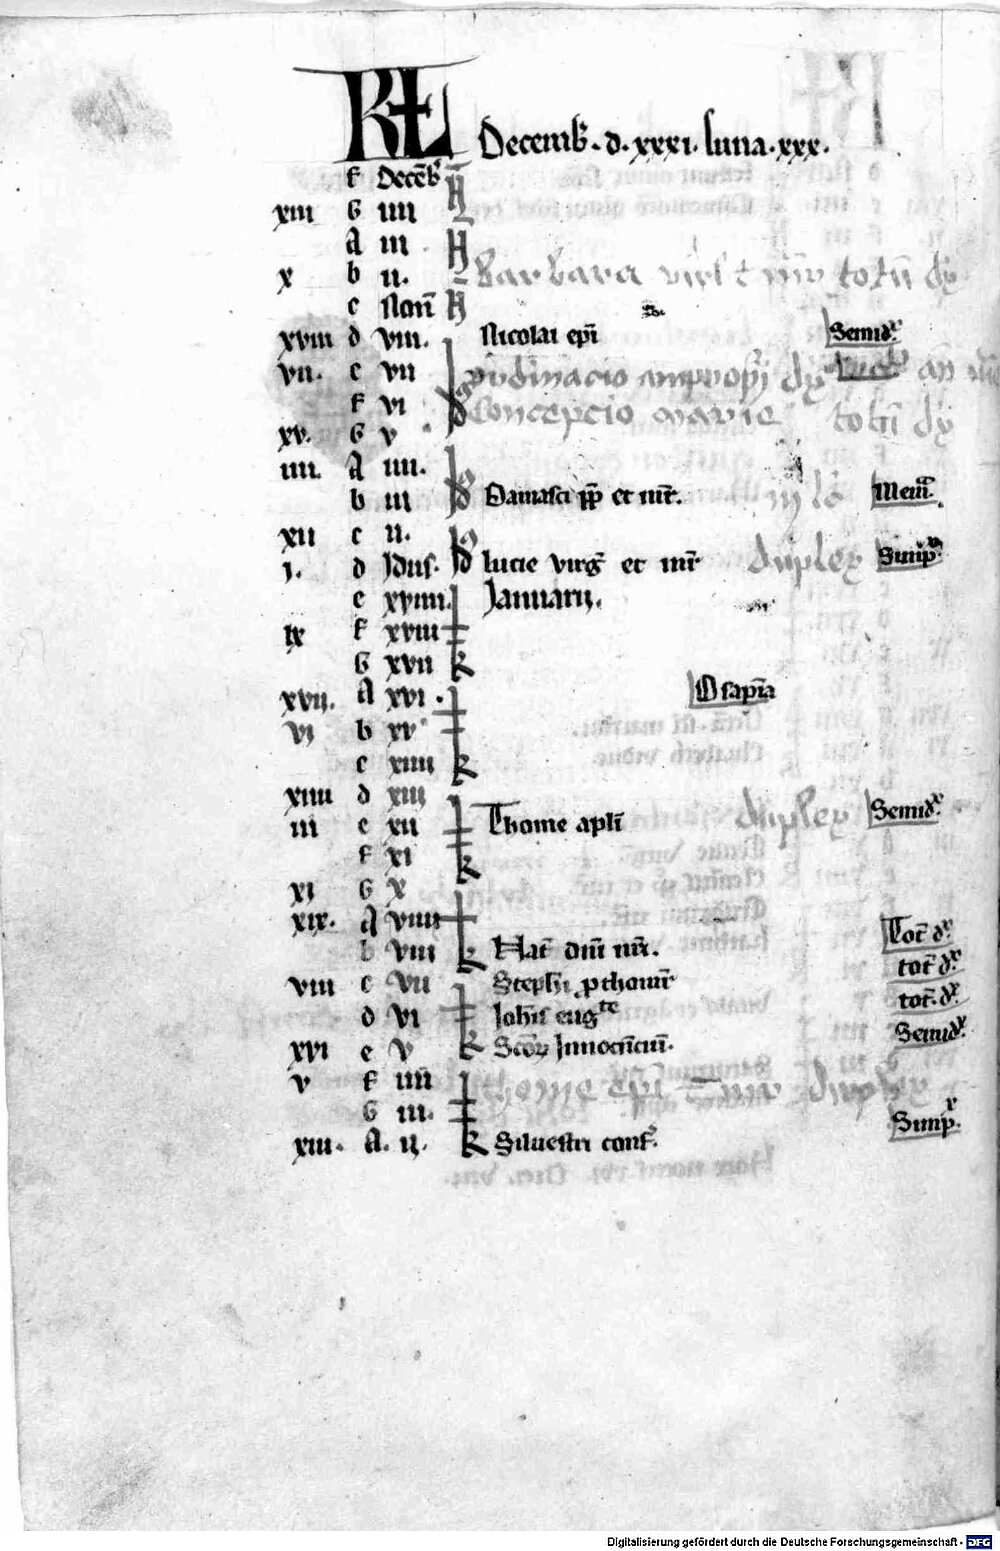 KL Decemb̄. d. xxxi. luna. xxx.
f Decēb̄
xiii G iiii
A iii
x b ii. Barbara totū dx̄
c Non̄
xviii d viii. Nicolai epī Semidx̄
vii. e vii ordinacio ambrosij dx̄
f vi Concepcio marie totū dx̄
xv. G v
iiii. A iiii.
b iii Damasci pp̄ et mr̄. Mem̄.
xii c ii.
i. d Idus. lucie virḡ et mr̄ duplex Simpx
e xviiii. Januarii.
ix f xviii
G xvii
xvii. A xvi. O sapīa
vi b xv
c xiiii
xiiii d xiii
iii e xii Thome aplī duplex Semidx̄
f xi
xi G x
xix. A viiii
b viii Nat̄ dn̄i nr̄i. Tot̄ dx̄
viii c vii Stephī prothomr̄ tot̄ dx̄
d vi Joh̄is euḡte tot̄. dx̄
xvi e v Sc̄oꝝ Innocēciū. Semidx̄
v f iiii thome epi duplex
G iii.
xiii. A. ii. Siluestri conf̄. Simpx
Digitalisierung gefördert durch die Deutsche Forschungsgemeinschaft - DFG